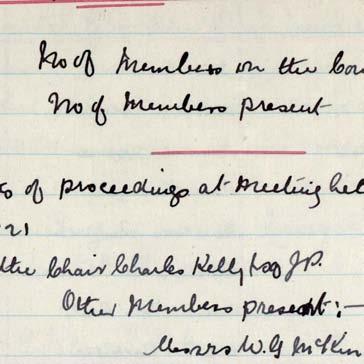 No of Members on the Cou
No of Members present
s of proceedings at Meeting hel
21
the Chair Charles Kelly Esq J.P.
Other Members present:—
Messrs W.G. McKin